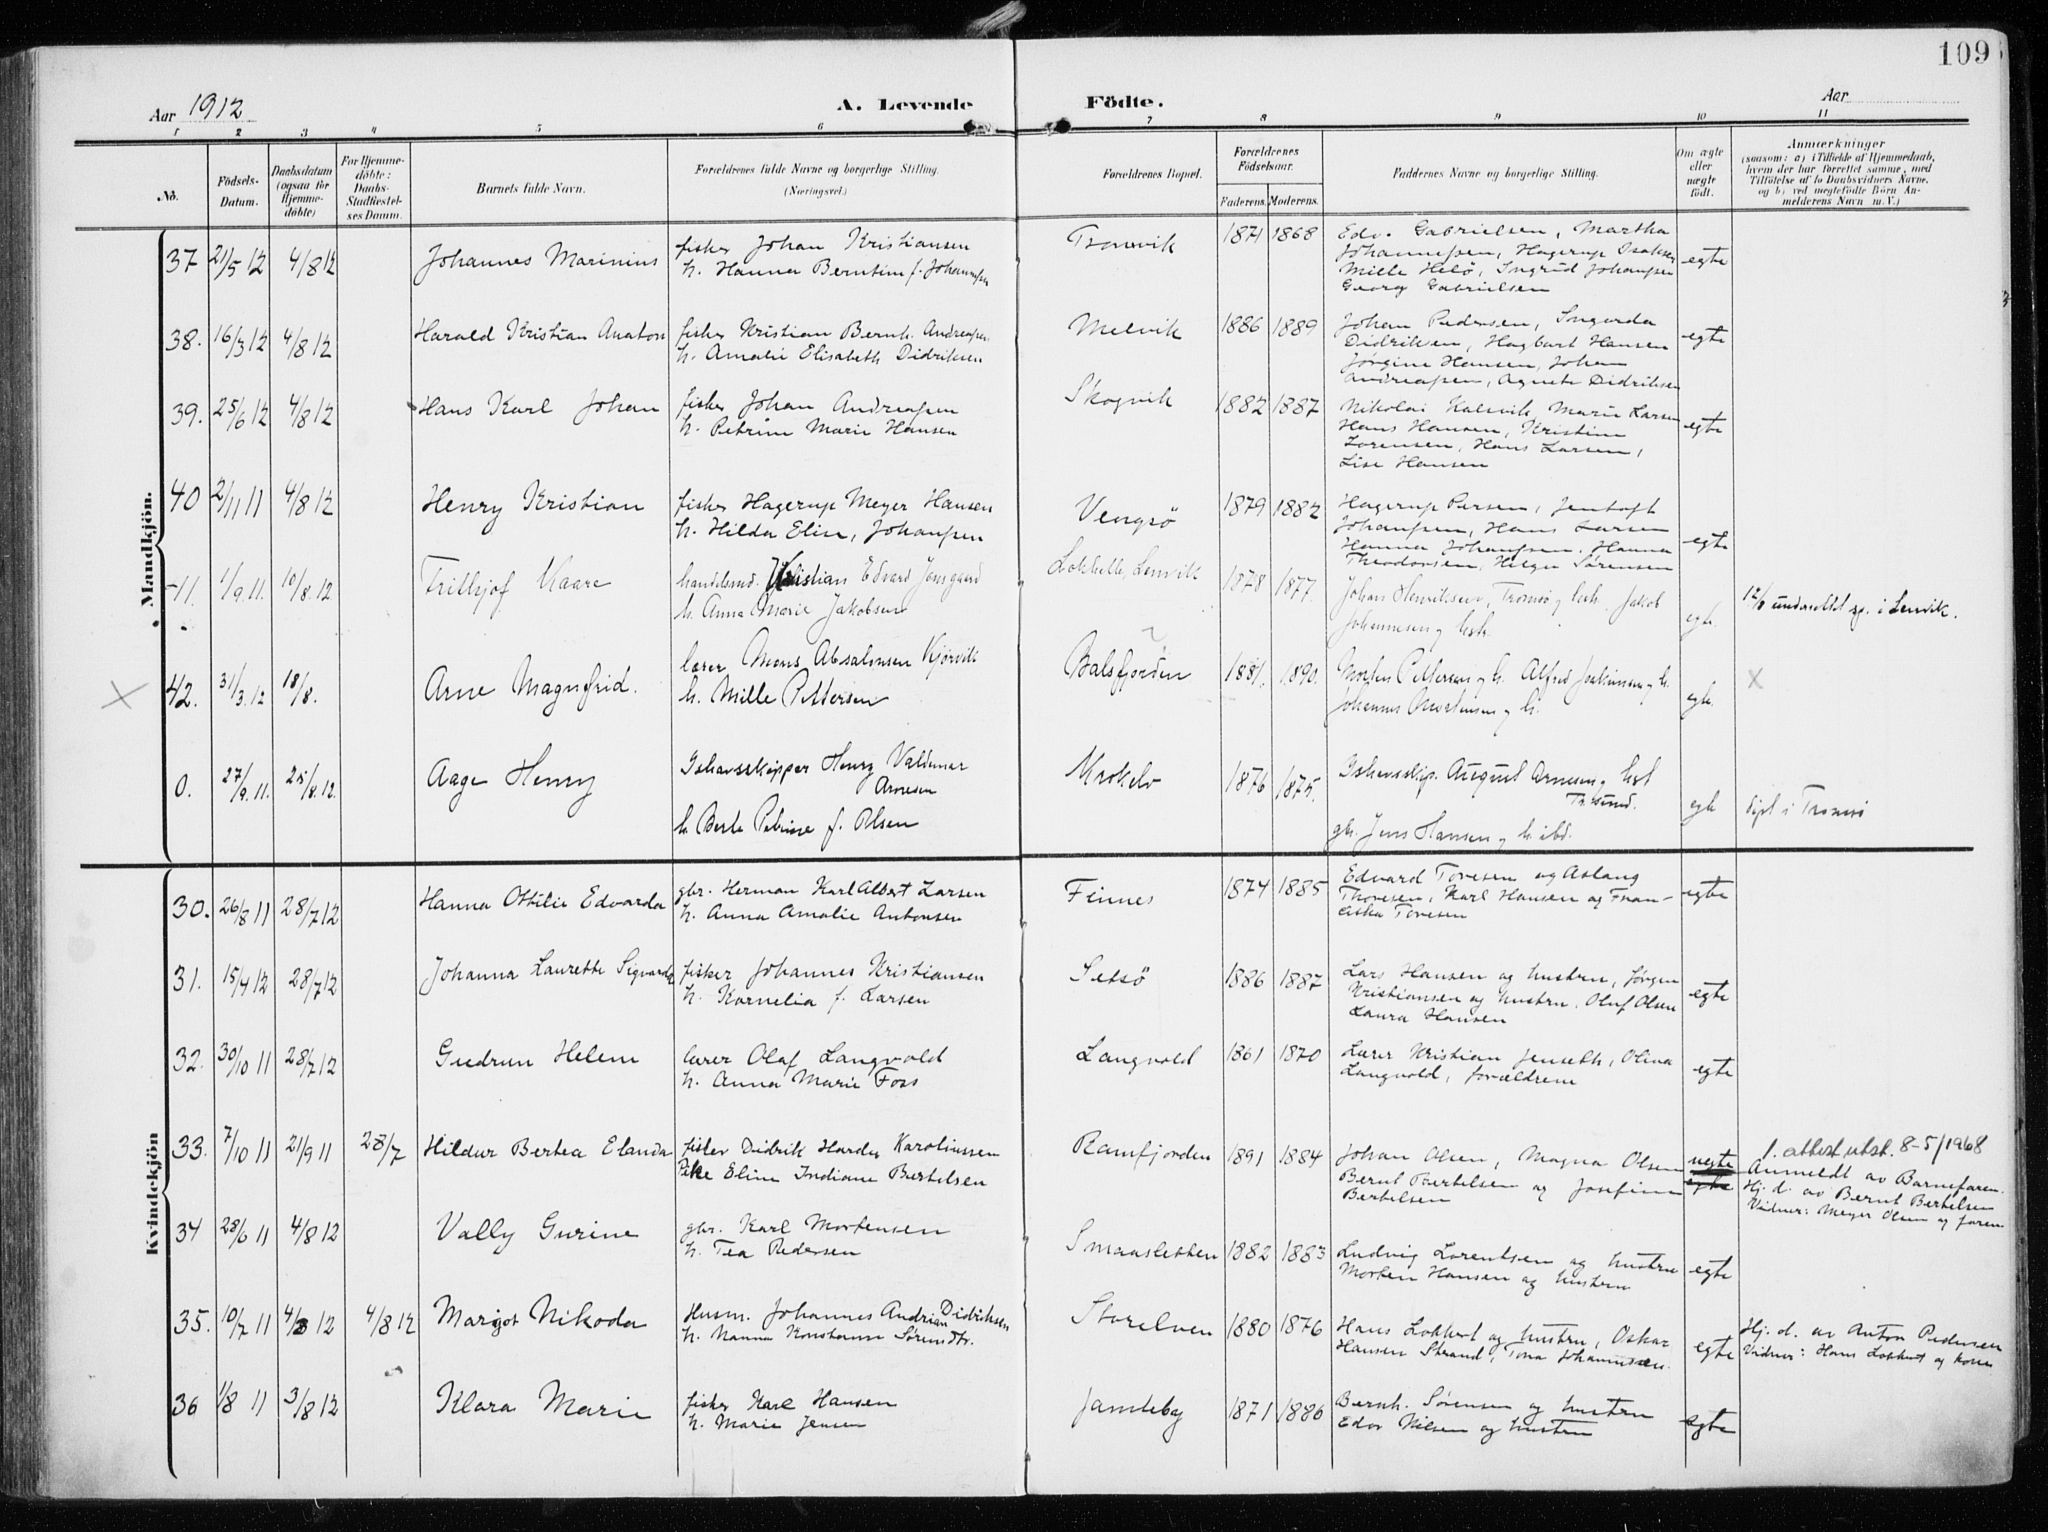 109
Aar 1912
A. Levende Födte.
Aar
1 2 3 4 5 6 7 8 9 10 11
No.
Födsels-Datum.
Daabsdatum (ogsaa for Hjemme-döbte)
For Hjemme-döbte: Daabs-Stadfæstel-ses Datum.
Barnets fulde Navn.
Forældrenes fulde Navne og borgerlige Stilling. (Næringsvei.)
Forældrenes Bopæl.
Forældrenes Födselsaar.
Faderens. Moderens.
Faddernes Navne og borgerlige Stilling.
Om ægte eller uægte født.
Anmærkninger
(saasom: a) i Tilfælde af Hjemmedaab, hvem der har forrettet samme, med Tilføielse af to Daabsvidners Navne, og b) ved uegtefödte Börn Anmelderens Navn m. V.)
Mandkjön.
37 21/5 12 4/8 12 Johannes Marinius fisker Johan Kristiansen Tromvik 1871 1868 Edv. Gabrielsen, Martha
h. Hanna Berntine f. Johannessen Johannessen, Hagerup Isaksen egte
Mille Helø, Ingrid Johansen
Georg Gabrielsen
38. 16/3 12 4/8 12 Harald Kristian Anaton fisker Kristian Bernh. Andreassen Melvik 1886 1889 Johan Pedersen, Ingarda egte
h. Amalie Elisabeth Didriksen Didriksen, Hagbart Hansen
Jørgine Hansen, Johan
Andreassen, Agnete Didriksen
39. 25/6 12 4/8 12 Hans Karl Johan fisker Johan Andreassen Skogvik 1882 1887 Nikolai Kalvik, Marie Larsen
h. Petrine Marie Hansen Hans Hansen, Kristine egte
Lorensen, Hans Larsen,
Lise Hansen
40 2/11 11 4/8 12 Henry Kristian fisker Hagerup Meyer Hansen Vengsø 1879 1882 Hagerup Persen, Jentoft
h. Hilda Elise, Johansen Johansen, Hans Larsen
Hanna Johansen, Hanna egte
Theodorsen, Helga Sørensen
41. 1/9 11. 10/8. 12 Frithjof Kaare handelsmd. Kristian Edvard Jonsgaard Lenvik 1878 1877. Johan Henriksen, Tromsø g hsh. Jakob 12/8 underrettet spr. i Lenvik.
h. Anna Marie Jakobsen Johannesen g hsh. egte.
X 42. 31/3. 12 18/8. Arne Magnfrid. lærer Mons Absalonsen Kjørvik Balsfjorden 1881. 1890. Morten Pettersen g h. Alfred Joakimsen g h. X
h. Mille Pettersen Johannes Mortensen g h. egte.
0. 27/9. 11. 25/8. 12. Aage Henry Ishavsskipper Henry Valdemar Arnesen Krokelv 1876 1875. Ishavsskip. August Arnesen g hst
Tr.sund.
h. Berte Petrine f. Olsen gbr. Jens Hansen g h. ibd. egte døpt i Tromsø
Kvindekjön
30. 26/8 11 28/7 12 Hanna Ottilie Edvarda gbr. Herman Karl Albert Larsen Finnes 1874 1885 Edvard Toresen og Aslaug egte
h. Anna Amalie Antonsen Thoresen, Karl Hansen og Fran-
ciska Toresen
31. 15/4 12 28/7 12 Johanna Laurette Sigvarda fisker Johannes Kristiansen Selsø 1886 1887 Lars Hansen og hustru, Jørgen egte
h. Kornelia f. Larsen Kristiansen og hustru. Oluf Olsen
Laura Hansen
32. 30/10 11 28/7 12 Gudrun Helene lærer Olaf Langvold Langvold 1861 1870 Lærer Kristian Jenseth, Olina egte
h. Anna Marie Foss Langvold, forældrene
33. 7/10 11 21/9 11 28/7 Hildur Bertea Elanda fisker Didrik Hardes Karoliussen Ramfjorden 1891 1884 Johan Olsen, Magna Olsen uegte 1. attest utst. 8-5/1968
Pike Eline Indiane Bertelsen Bernt Bertelsen og Josefine egte Anmeldt av Barnefaren.
Bertelsen Hj. d. av Bernt Bertelsen
Vidner: Meyer Olsen og faren
34 28/6 11 4/8 12 Vally Gurine gbr. Karl Mortensen Smaasletten 1882 1883 Ludvig Lorentsen og hustru egte
h. Tea Pedersen Morten Hansen og hustru
35. 10/7 11 4/8 12 4/8 12 Margot Nikoda Husm. Johannes Andrian Didriksen Storelven 1880 1876 Hans Lokkert og hustru, Oskar egte Hj. d. av Anton Pedersen
h. Nanna Konstanse Hansen Strand, Tona Johannessen. Vidner: Hans Lokkert og kone
36 1/8 11 3/8 12 Klara Marie fisker Karl Hansen Jamteby 1871 1886 Bernh. Sørensen og hustru egte
h. Marie Jensen Edv Nilsen og hustru